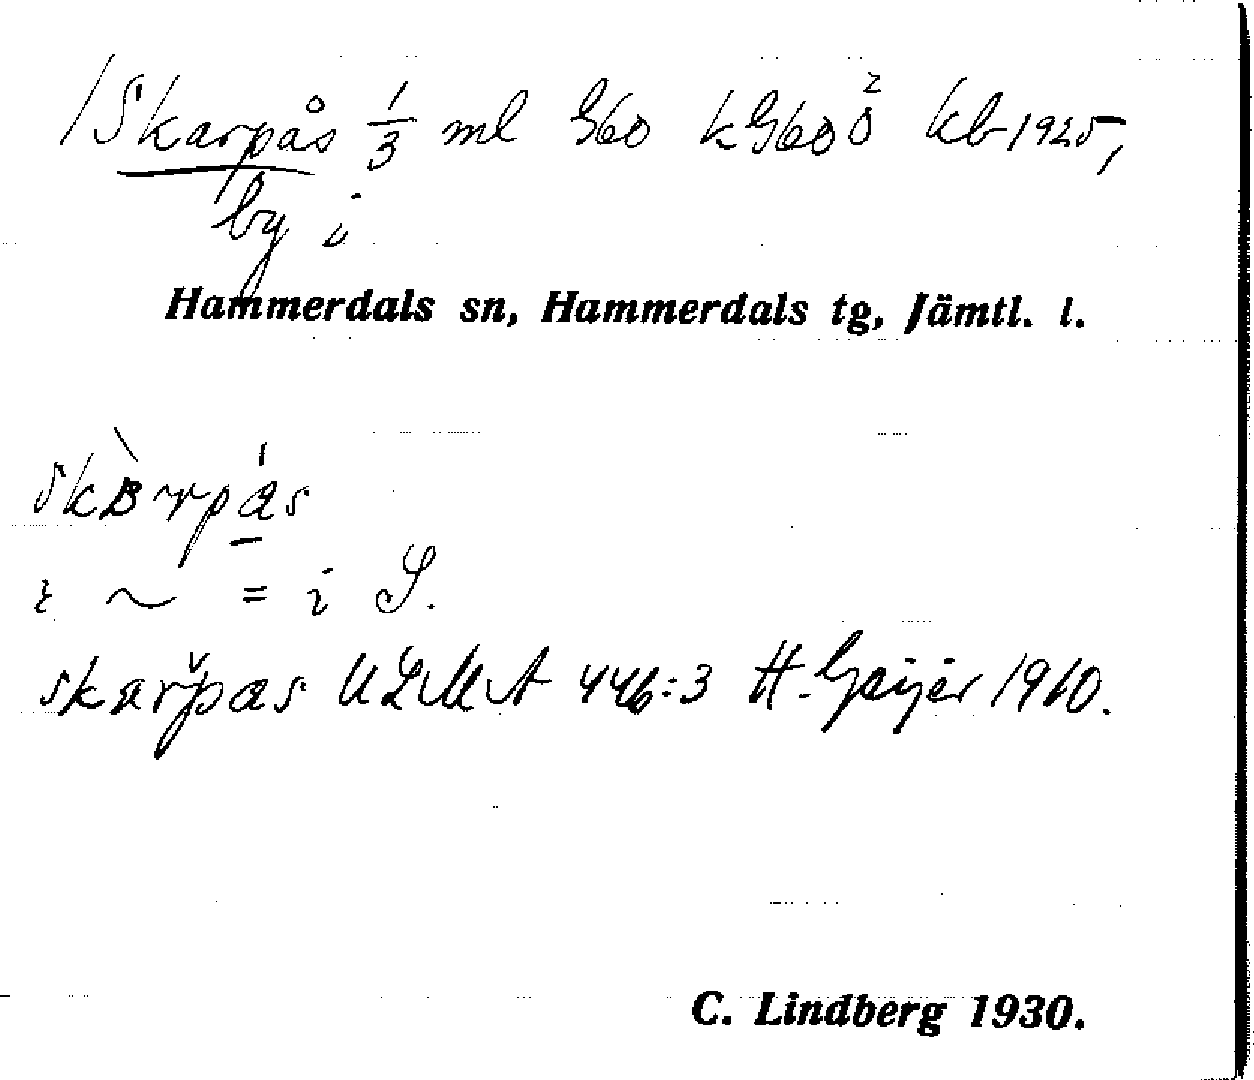 /Skarpås 1/3 ml G60 kG60ö kb 1925,
by i
Hammerdals sn, Hammerdals tg, Jämtl. l.
i ~ = i S.
skarpas ULMA 446:3 H. Geijer 1910.
C. Lindberg 1930.